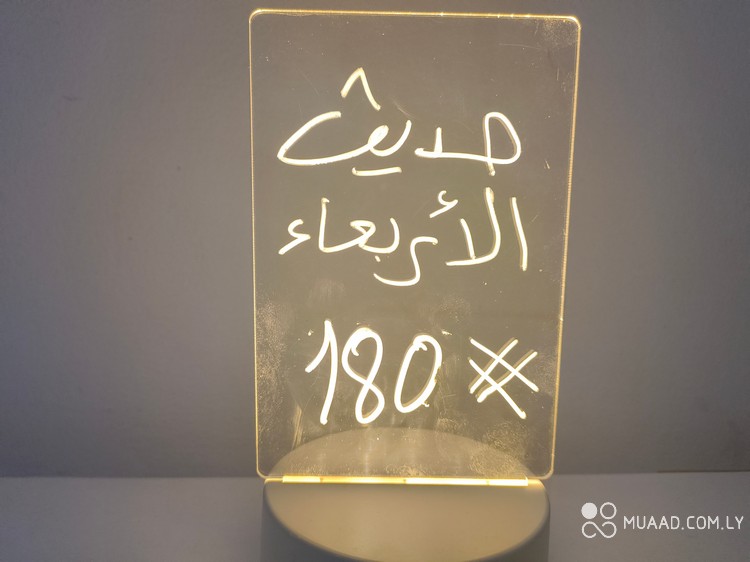 حديث
الأربعاء
180 #
MUAAD.COM.LY